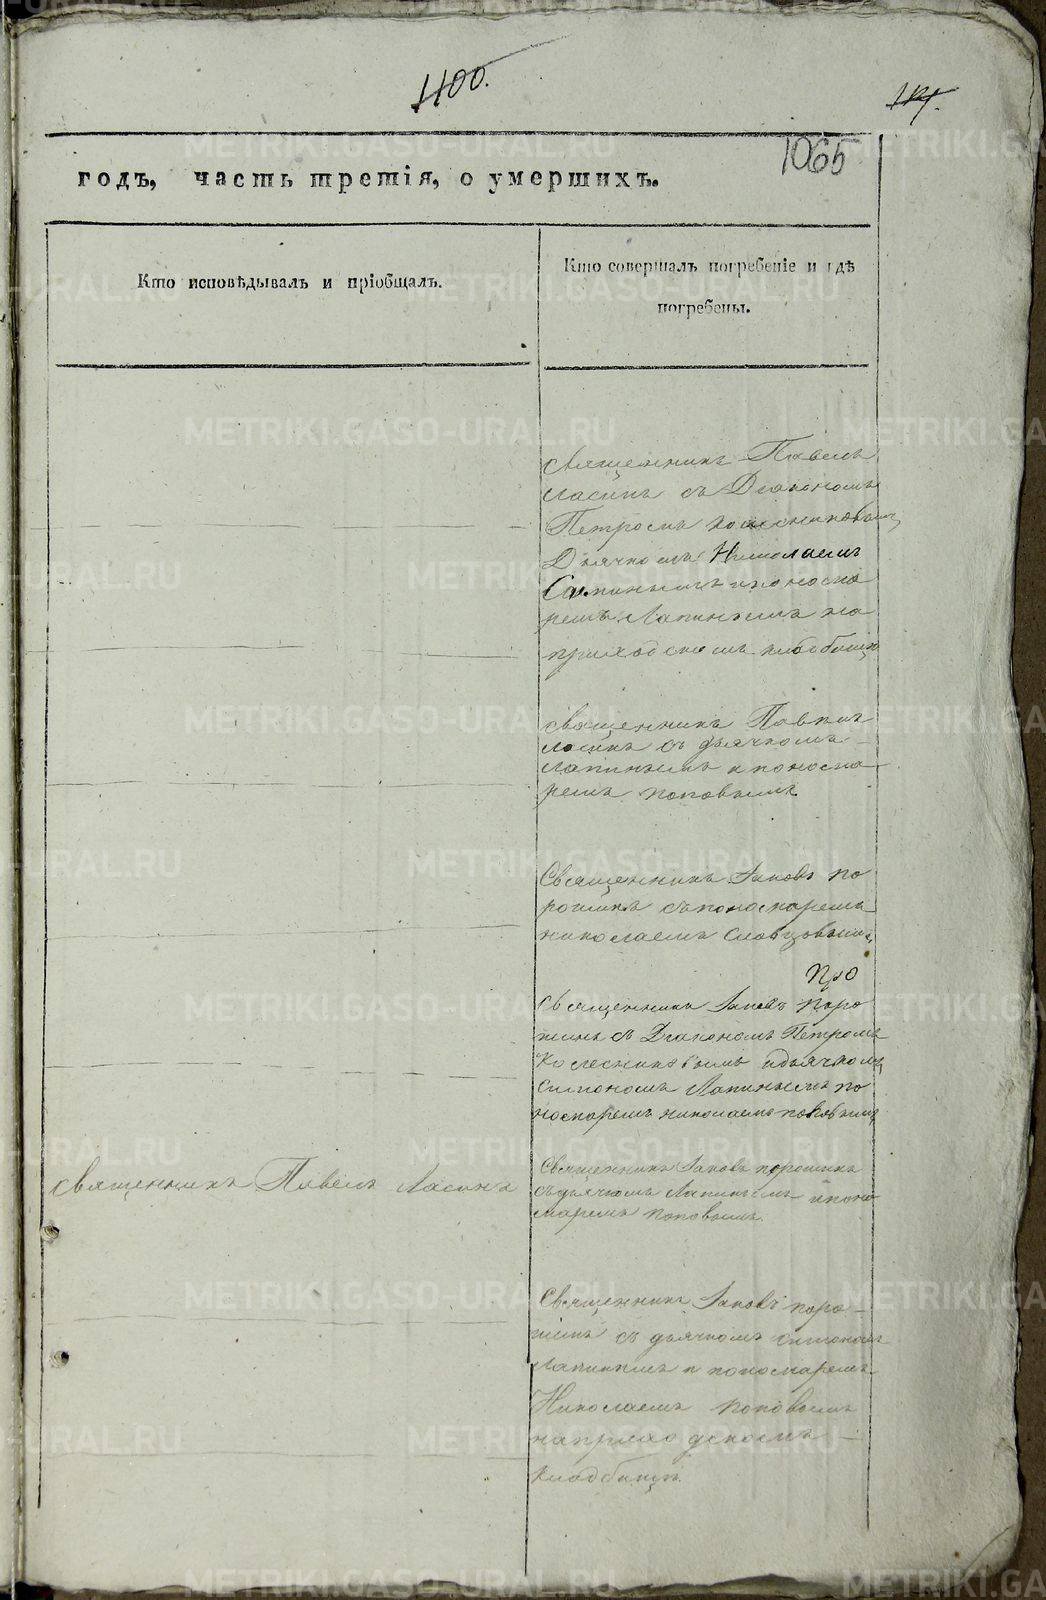 1400.
1065
годъ, часть третія, о умершихъ.
Кто исповѣдывалъ и пріобщалъ.
Кто совершалъ погребеніе и гдѣ
погребены.
священникъ Павелъ
Ласинъ съ Діакономъ
Петромъ Колесниковымъ
Дьячкомъ Николаемъ
и поно
ремъ Лапинымъ на
приходскомъ кладбищѣ
священникъ Павелъ
Ласинъ съ дьячкомъ
Лапинымъ и поно
ремъ Поповымъ
Священникъ Іаковъ по
рошинъ съ пономаремъ
николаемъ Словцовымъ
Священникъ Іаковъ поро
шинъ съ Діакономъ Петромъ
Колесниковымъ и дьячкомъ
Симономъ Лапинымъ по
номаремъ николаемъ поповымъ
священникъ Павелъ Ласинъ
Священникъ Іаковъ порошинъ
съ дьячкомъ Лапинымъ и поно
маремъ поповымъ
Священникъ Іаковъ поро-
шинъ съ дьячкомъ симономъ
лапинымъ и пономаремъ
Николаемъ поповымъ
на приходскомъ
кладбищѣ
METRIKI.GASO-URAL.RU